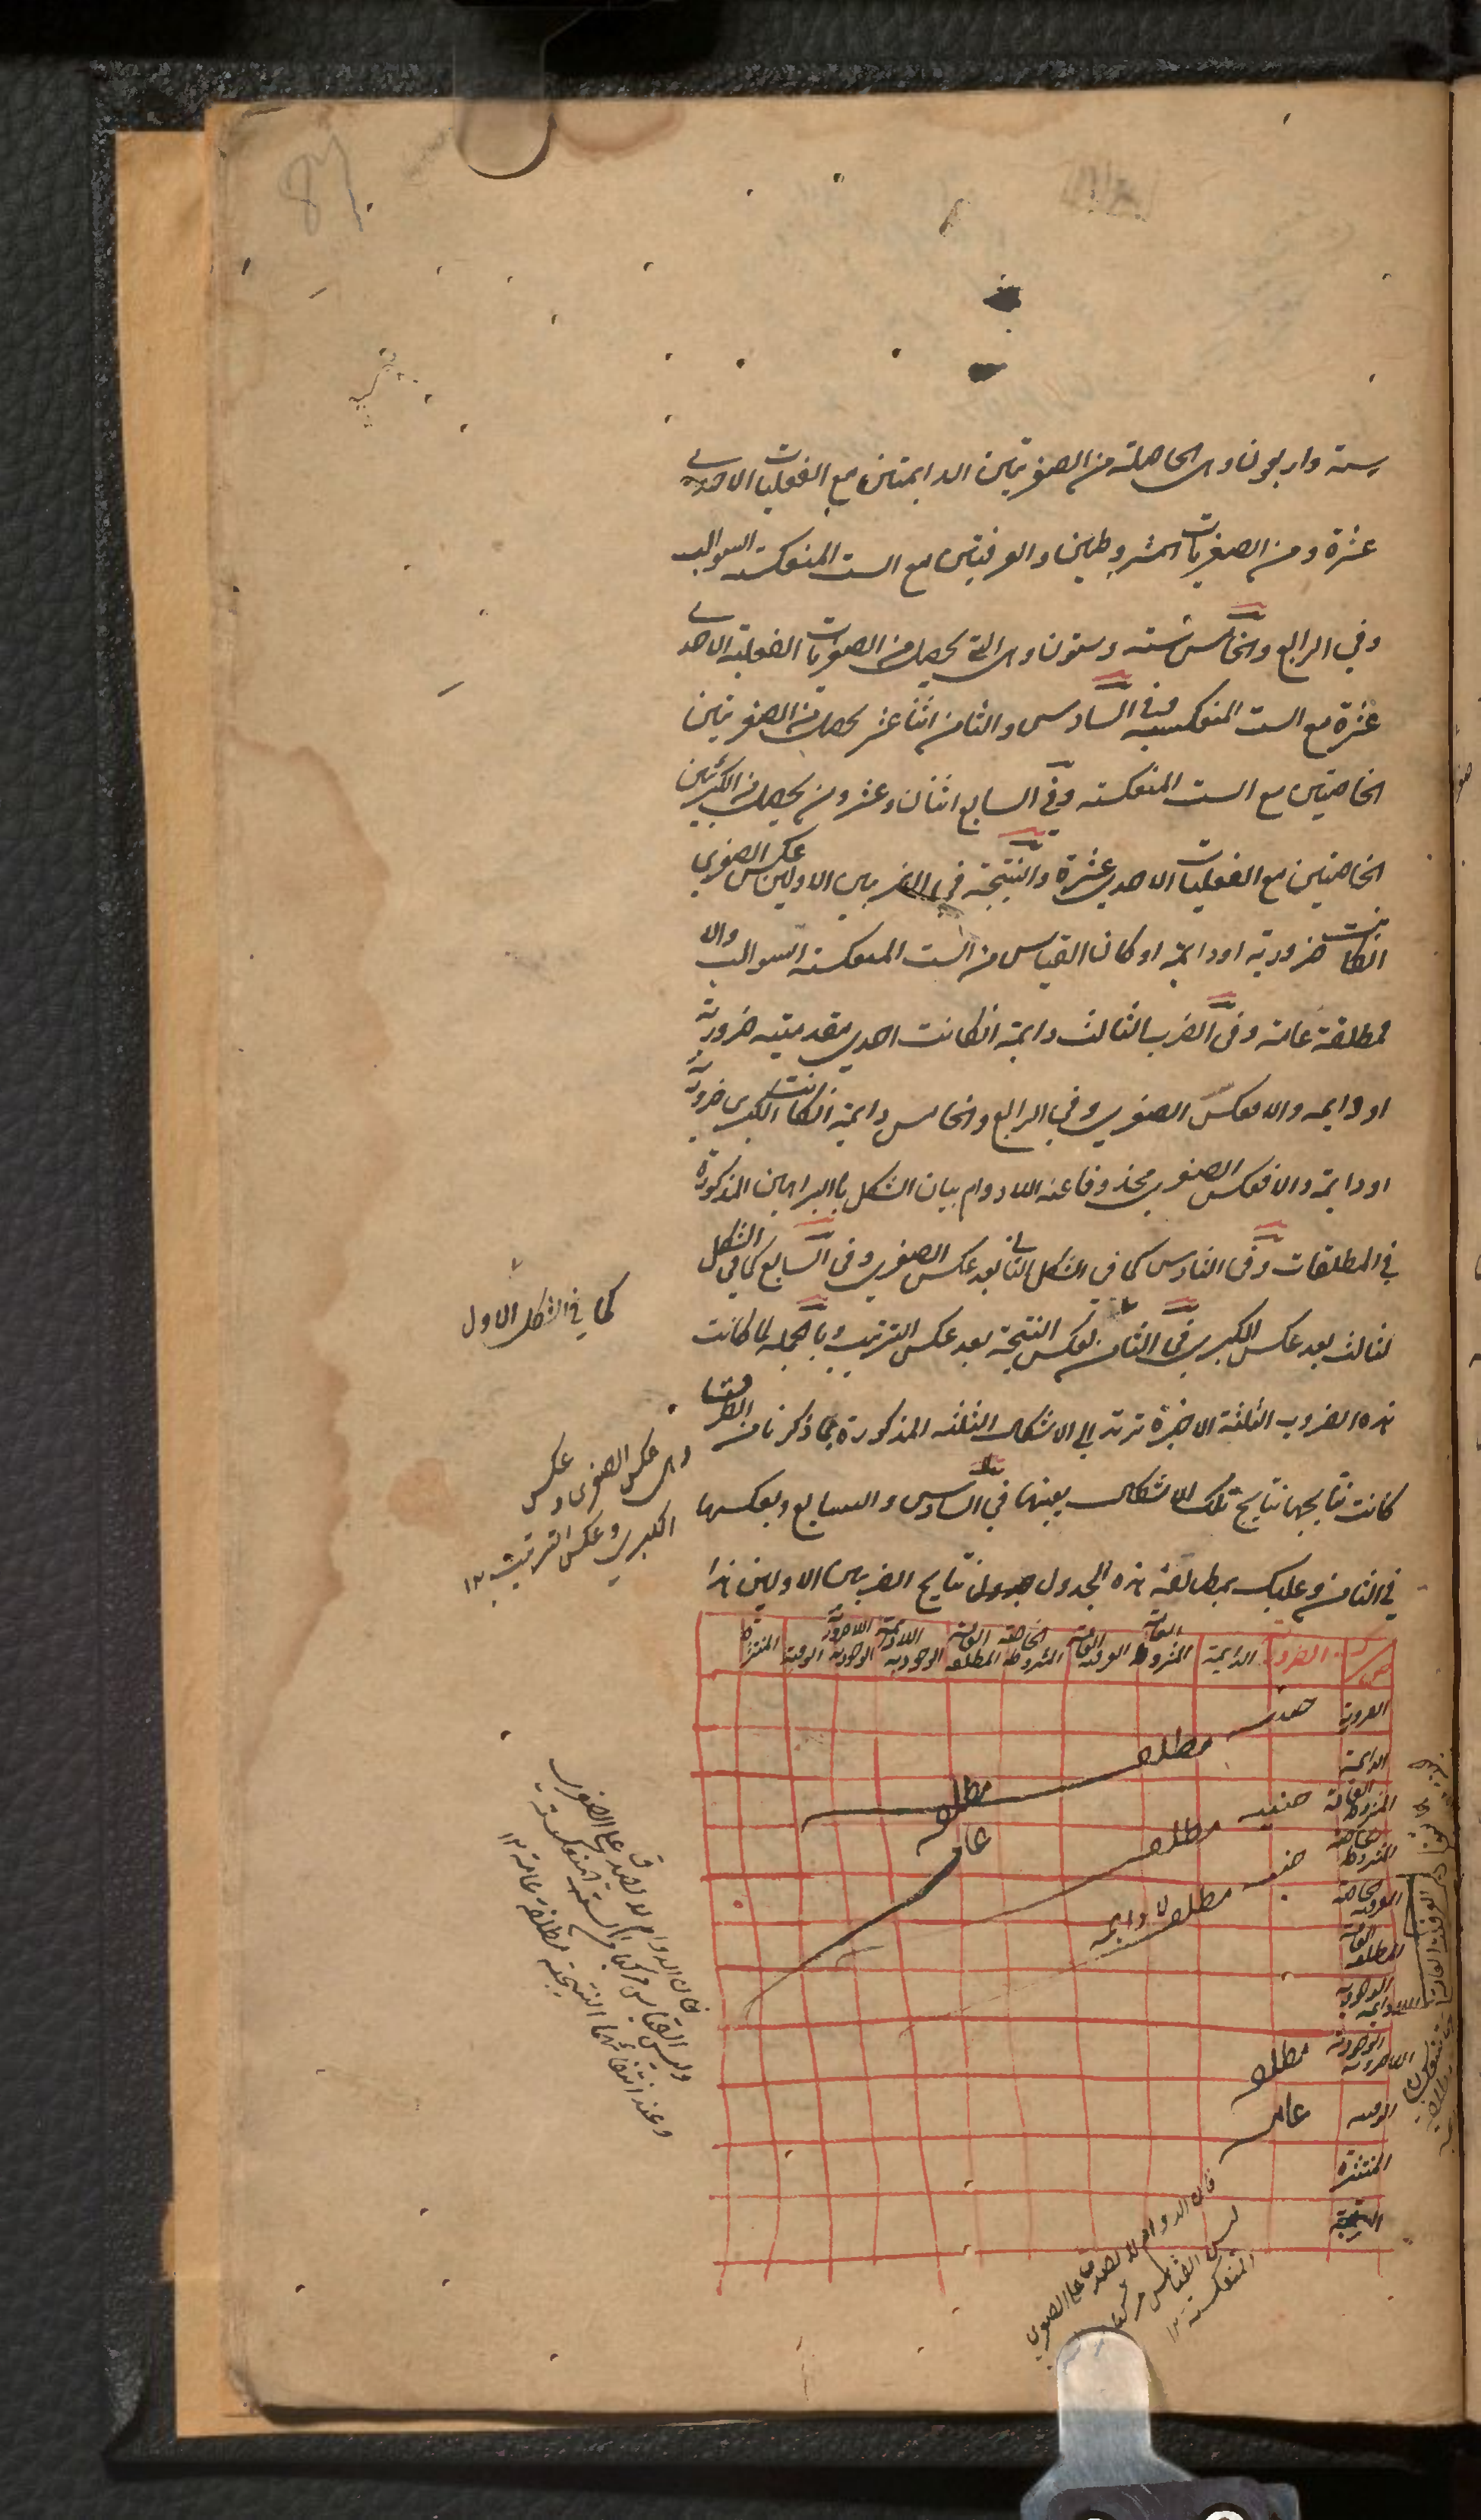 ستة واربعون وهي الحاصلة من الصغريتين الدايمتين مع الفعليات الاحدى
عشرة ومن الصغريات المشروطتين والعرفيتين مع الست المنعكسة السوالب
وفي الرابع والخامس ستة وستون وهي التي يحصل من الصغريات الفعلية الاحدى
عشرة مع الست المنعكسة وفي السادس والثامن اثنا عشر يحصل من الصغريتين
الخاصتين مع الست المنعكسة وفي السابع اثنان وعشرون يحصل من الكبريين
الخاصتين مع الفعليات الاحدى عشرة والنتيجة في الضربين الاولين عكس الصغرى
انكانت ضرورية او دايمة او كان القياس من الست المنعكسة السوالب والا
فمطلقة عامة وفي الضرب الثالث دايمة انكانت احدى مقدمتيه ضرورية
او دايمه والا فعكس الصغرى وفي الرابع والخامس دايمة انكانت الكبرى ضرورية
او دايمة والا فعكس الصغرى محذوفا عنه اللادوام بيان الشكل بالبراهين المذكورة
في المطلقات وفي السادس كما في الشكل الثاني بعد عكس الصغرى وفي السابع كما في الشكل
لثالث بعد عكس الكبرى وفي الثامن بعكس النتيجة بعد عكس الترتيب وبالجملة لما كانت
هذه الضروب الثلثة الاخيرة ترتد الى الاشكال الثلثة المذكورة بما ذكرنا من الطرق
كانت نتايجها نتايج تلك الاشكال بعينها في السادس والسابع وبعكسها
في الثامن وعليك بمطالعة هذه الجدول جدول نتايج الضربين الاولين هذا
كما في الشكل الاول
وهي عكس الصغرى وعكس
الكبرى وعكس الترتيب ١٢
ص
الضرورية
الدايمة
المشروطة العامة
العرفية العامة
المشروطة الخاصة
المطلقة العامة
الوجودية اللادايمة
الوجودية اللاضرورية
الوقتية
المنتشرة
الضرورية
الدايمة
المشروطة العامة
المشروطة الخاصة
العرفية الخاصة
المطلقة العامة
الوجودية اللادايمة
الوجودية اللاضرورية
الوقتية
المنتشرة
حينية مطلقه
مطلقه
عامه
حينيه مطلقه
حينيه مطلقه لادايمه
مطلقه
عامه
فان الدوام لا يصدق على الصغرى
وليس القياس مركبا من الست المنعكسة
وعند انتفائهما النتيجة مطلقة عامة ١٢
فان الدوام لا يصدق على الصغرى
ليس القياس مركبا
المنعكسة ١٢